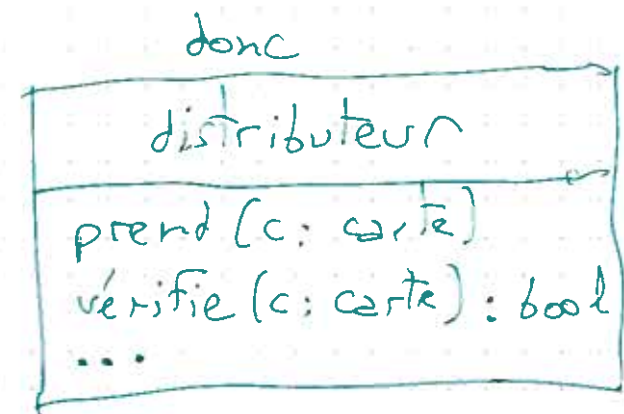 donc
distributeur
prend (c: carte)
vérifie (c: carte): bool
...